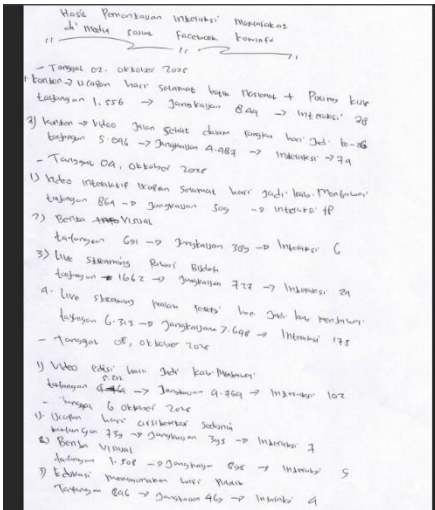 Hasil Pemantauan Interaksi Masyarakat
di Media sosial Facebook Kominfo
- Tanggal 02, oktober 2025
1. Konten -> Ucapan hari selamat batik Nasional +
tayangan 1.556 -> Jangkauan 849 -> Interaksi 28
2) konten -> Video Jalan Sehat dalam rangka hari Jadi ke-26
tayangan 5.096 -> Jangkauan 4.487 -> Interaksi -> 79
- Tanggal 04, oktober 2025
1) Video interaktif Ucapan Selamat hari Jadi kab. Mentawai
tayangan 864 -> Jangkauan 509 -> interaksi
2) Berita Visual
tayangan 691 -> Jangkauan 389 -> Interaksi 6
3) Live Streaming Pawai Budaya
tayangan 1662 -> Jangkauan 727 -> Interaksi 29
4. Live streaming malam resepsi hari Jadi kab Mentawai
tayangan 6.313 -> Jangkauan 2.698 -> Interaksi 175
- Tanggal 05, oktober 2025
1) Video edisi hari Jadi Kab. Mentawai
tayangan -> Jangkauan 4.769 -> Interaksi 102
- Tanggal 6 oktober 2025
1). Ucapan hari arsitektur sedunia
tayangan 739 -> Jangkauan 395 -> Interaksi 7
2) Berita Visual
tayangan 1.508 -> Jangkauan 898 -> Interaksi 5
3) Edukasi menggunakan
Tayangan 846 -> Jangkauan 469 -> Interaksi 4